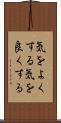 気をよく
する気を
良くする